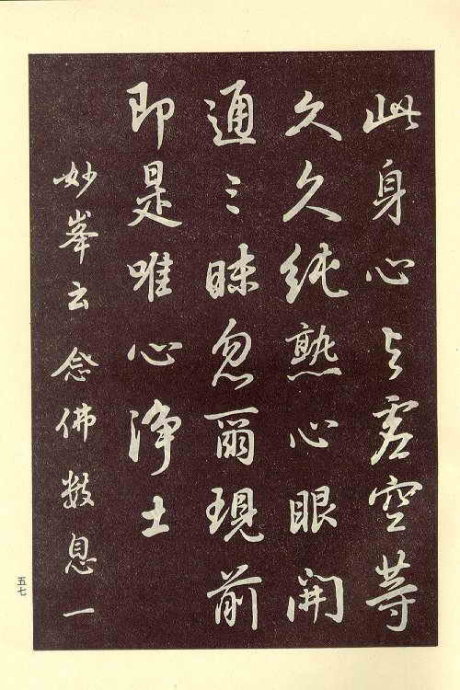 此身心与虚空等
久久纯熟心眼開
通三昧忽爾現前
即是唯心淨土
妙峯云念佛數息一
五七